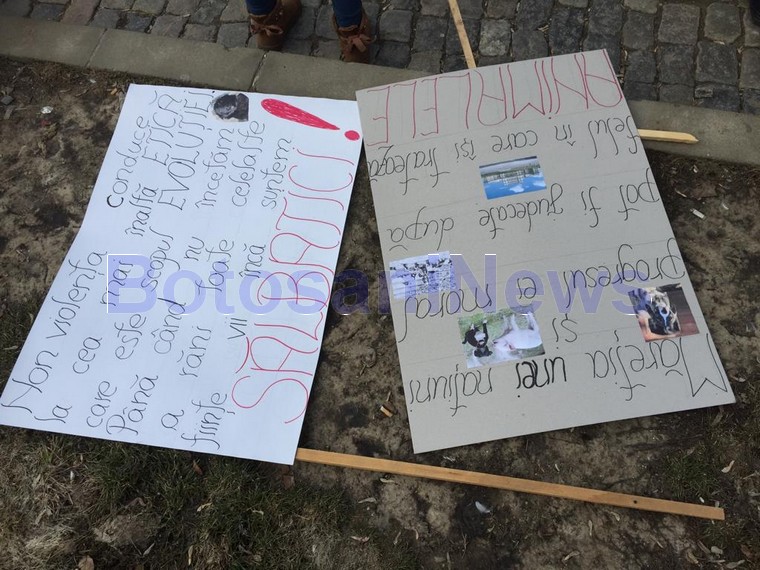 Non violența conduce
la cea mai înaltă ETICĂ
care este scopul EVOLUȚIEI
Până când nu încetăm
a răni toate celelalte
ființe vii încă suntem
SALBATICI!
Măreția unei națiuni
și
progresul ei moral
pot fi judecate după
felul în care își tratează
ANIMALELE
BotosaniNews